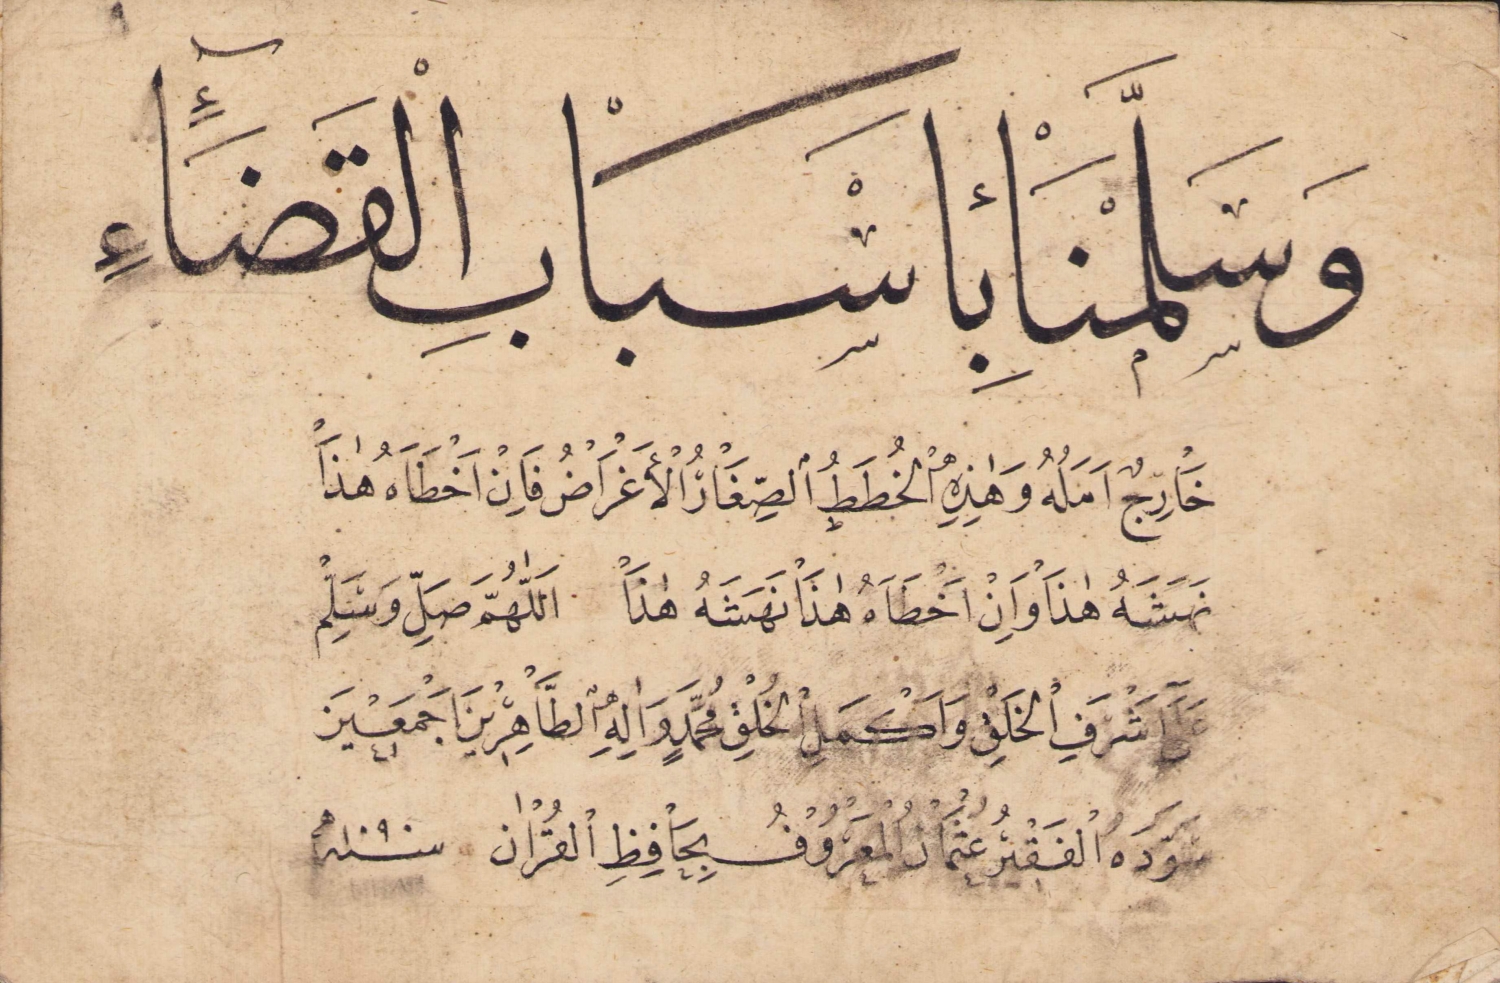 وَسَلَّمْنَا بِأَسْبَابِ الْقَضَاءِ
خَارِجٌ اَمَلُهُ وَهٰذِهِ الْخُطَطُ الصِّغَارُ الْأَعْرَاضُ فَاِنْ اَخْطَاَهُ هٰذَا
نَهَشَهُ هٰذَا وَاِنْ اَخْطَاَهُ هٰذَا نَهَشَهُ هٰذَا اَللّٰهُمَّ صَلِّ وَسَلِّمْ
عَلَى اَشْرَفِ الْخَلْقِ وَاَكْمَلِ الْخُلْقِ مُحَمَّدٍ وَاٰلِهِ الطَّاهِرِينَ اَجْمَعِينَ
سَوَّدَهُ الْفَقِيرُ عُثْمَانُ الْمَعْرُوفُ بِحَافِظِ الْقُرْاٰن سنه